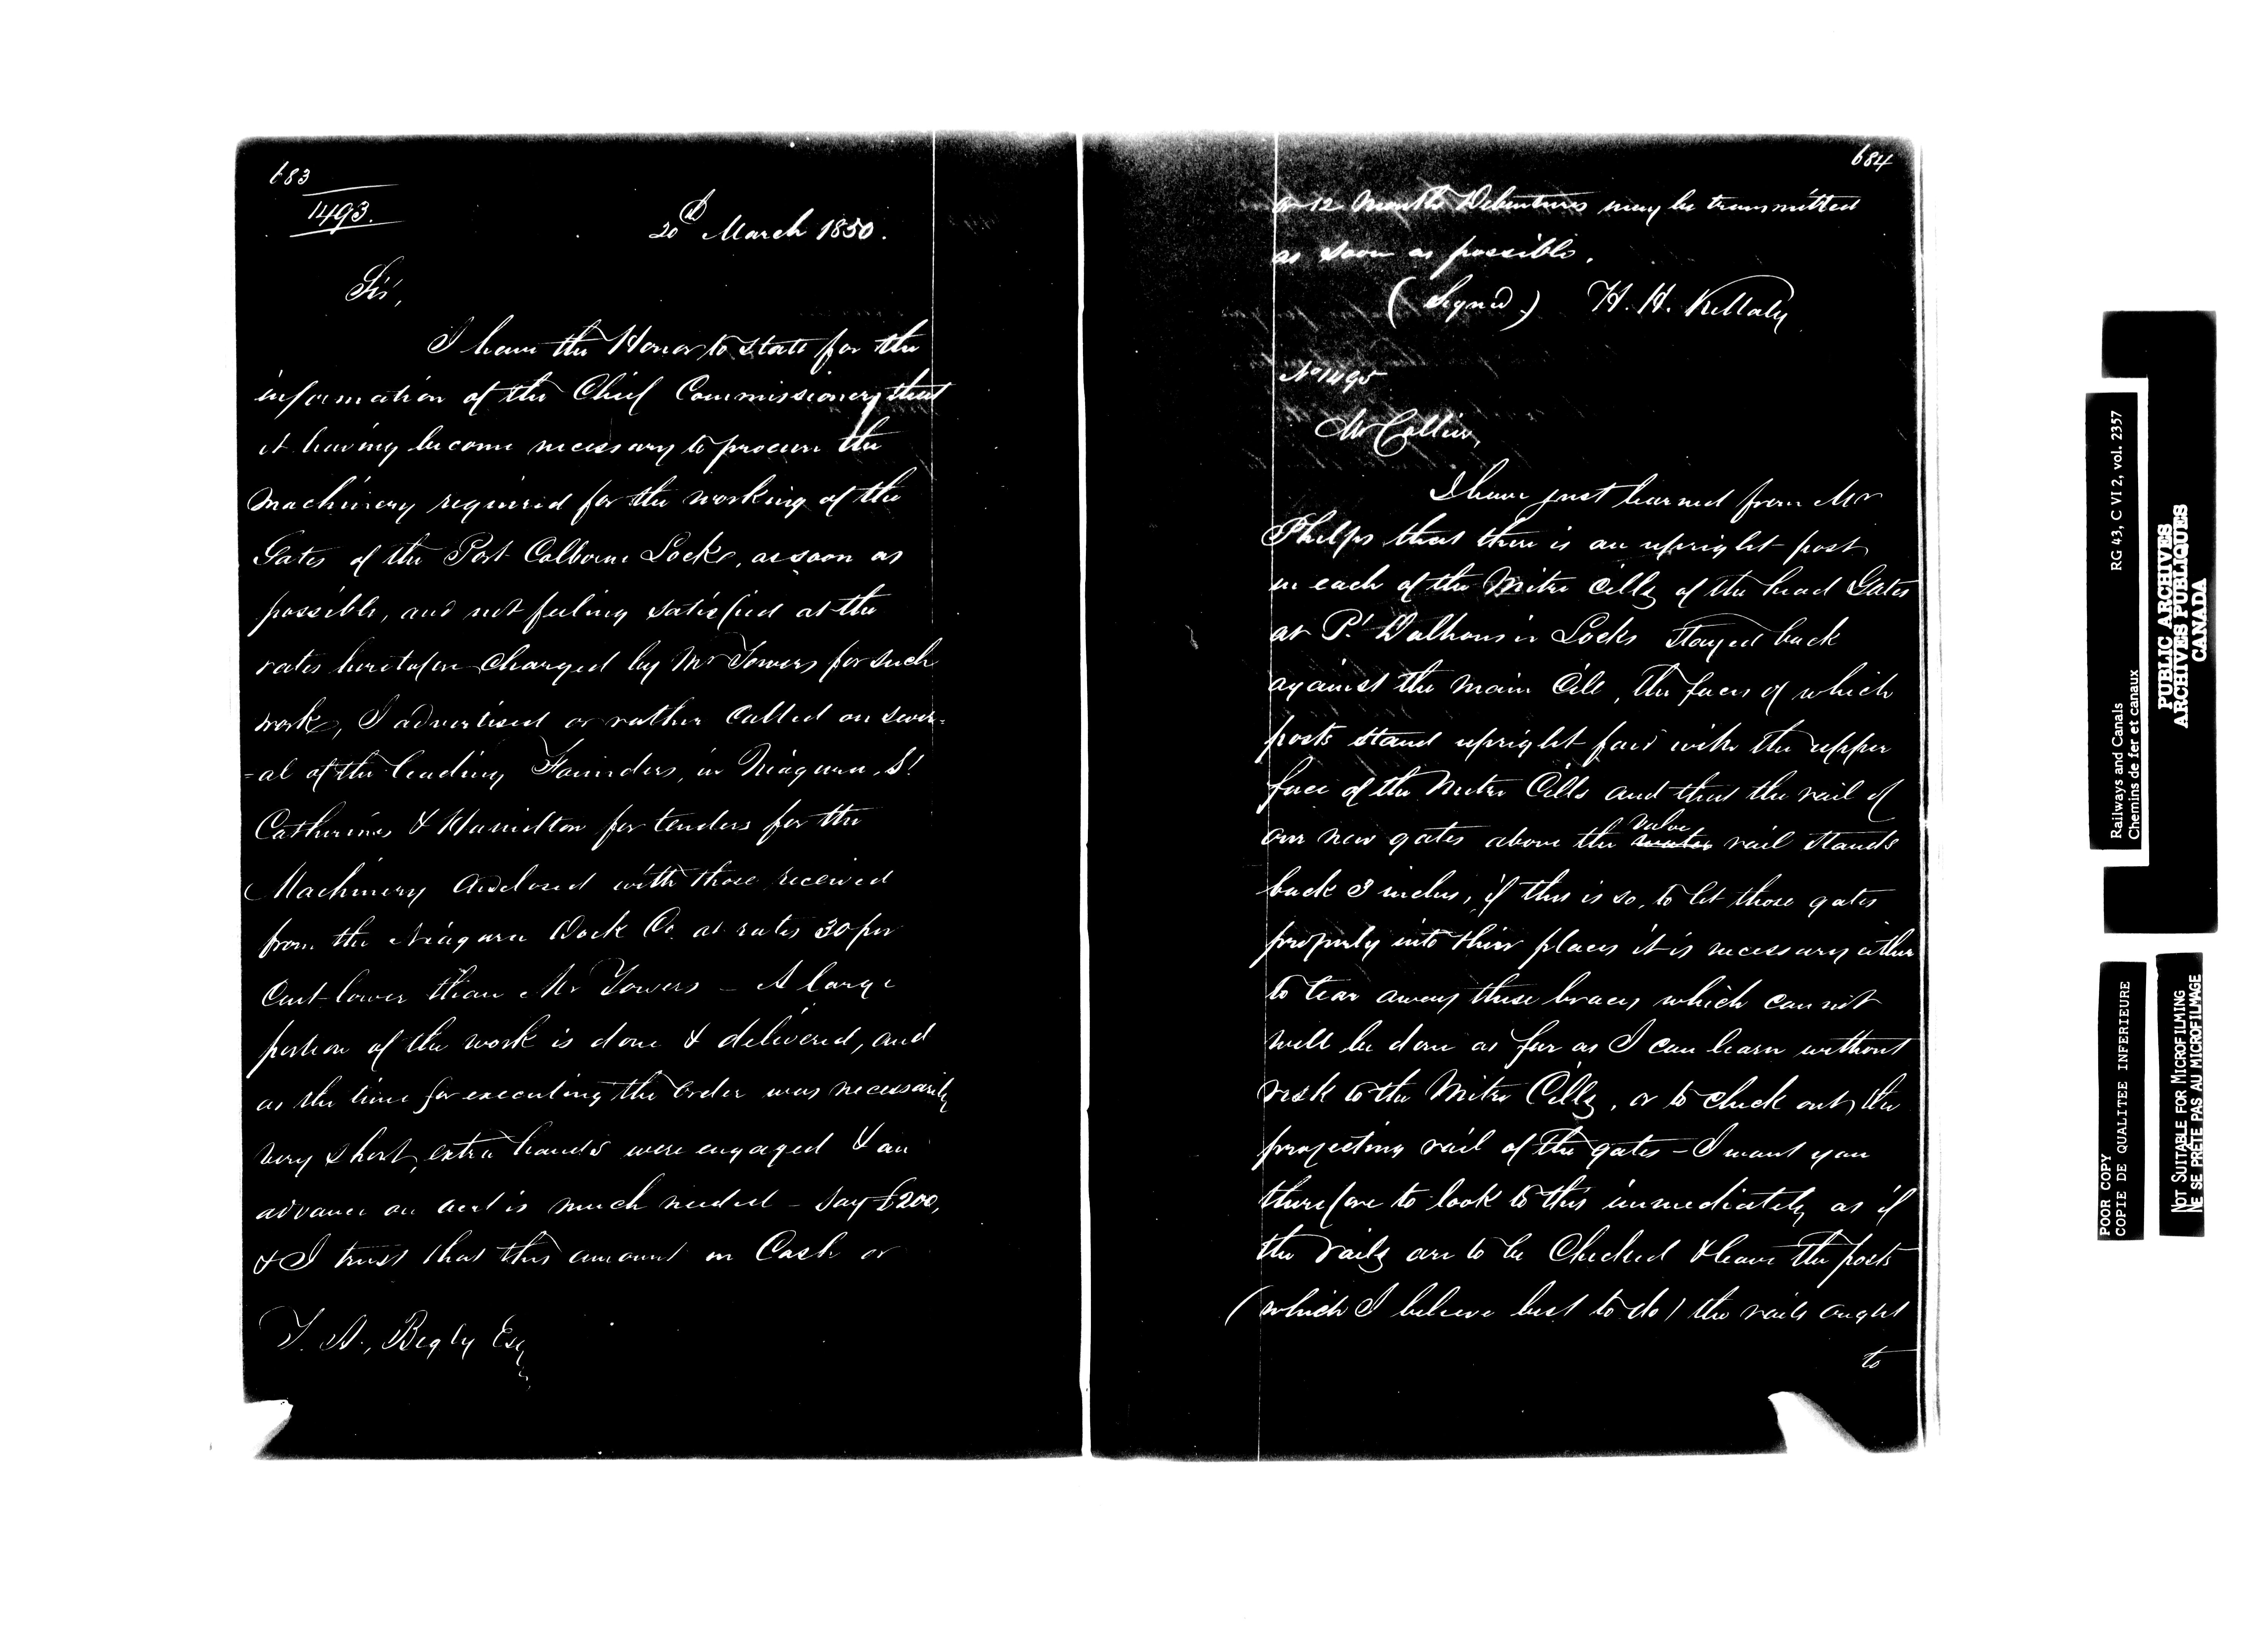 683
1493.
20th March 1850.
Sir,
I have the Honor to state for the
information of the Chief Commissioners that
it having become necessary to procure the
Machinery required for the working of the
Gates of the Port Colborne Lock, as soon as
possible, and not feeling satisfied at the
rates heretofore charged by Mr Towers for such
work, I advertised or rather Called on sever=
=al of the leading Founders, in Niagara, St
Catherines & Hamilton for tenders for the
Machinery and closed with those received
from the Niagara Dock Co. at rates 30 per
Cent lower than Mr Towers – A large
portion of the work is done & delivered, and
as the time for executing the order was necessarily
very short, extra hands were engaged & an
advance on acct is much needed – say £200,
& I trust that this amount in Cash or
T. A., Begly Esq
684
or 12 Months Debentures may be transmitted
as soon as possible.
(Signed) H. H. Killaly
No 1495
Mr Collier,
I have just learned from Mr
Phelps that there is an upright post
in each of the Mitre Cills of the head Gates
at Pt Dalhousie Locks stayed back
against the main Cill, the faces of which
posts stand upright fair with the upper
face of the Mitre Cills and that the rail of
our new gates above the valve water rail stands
back 3 inches, if this is so, to let those gates
properly into their places it is necessary either
to tear away these braces, which can not
well be done as far as I can learn without
risk to the Mitre Cills, or to check out the
projecting rail of the gates – I want you
therefore to look to this immediately as if
the rails are to be Checked & leave the posts
(which I believe best to do) the rails ought
to
RG 43, C VI 2, vol. 2357
Railways and Canals
Chemins de fer et canaux
PUBLIC ARCHIVES
ARCHIVES PUBLIQUES
CANADA
POOR COPY
COPIE DE QUALITEE INFERIEURE
NOT SUITABLE FOR MICROFILMING
NE SE PRÊTE PAS AU MICROFILMAGE